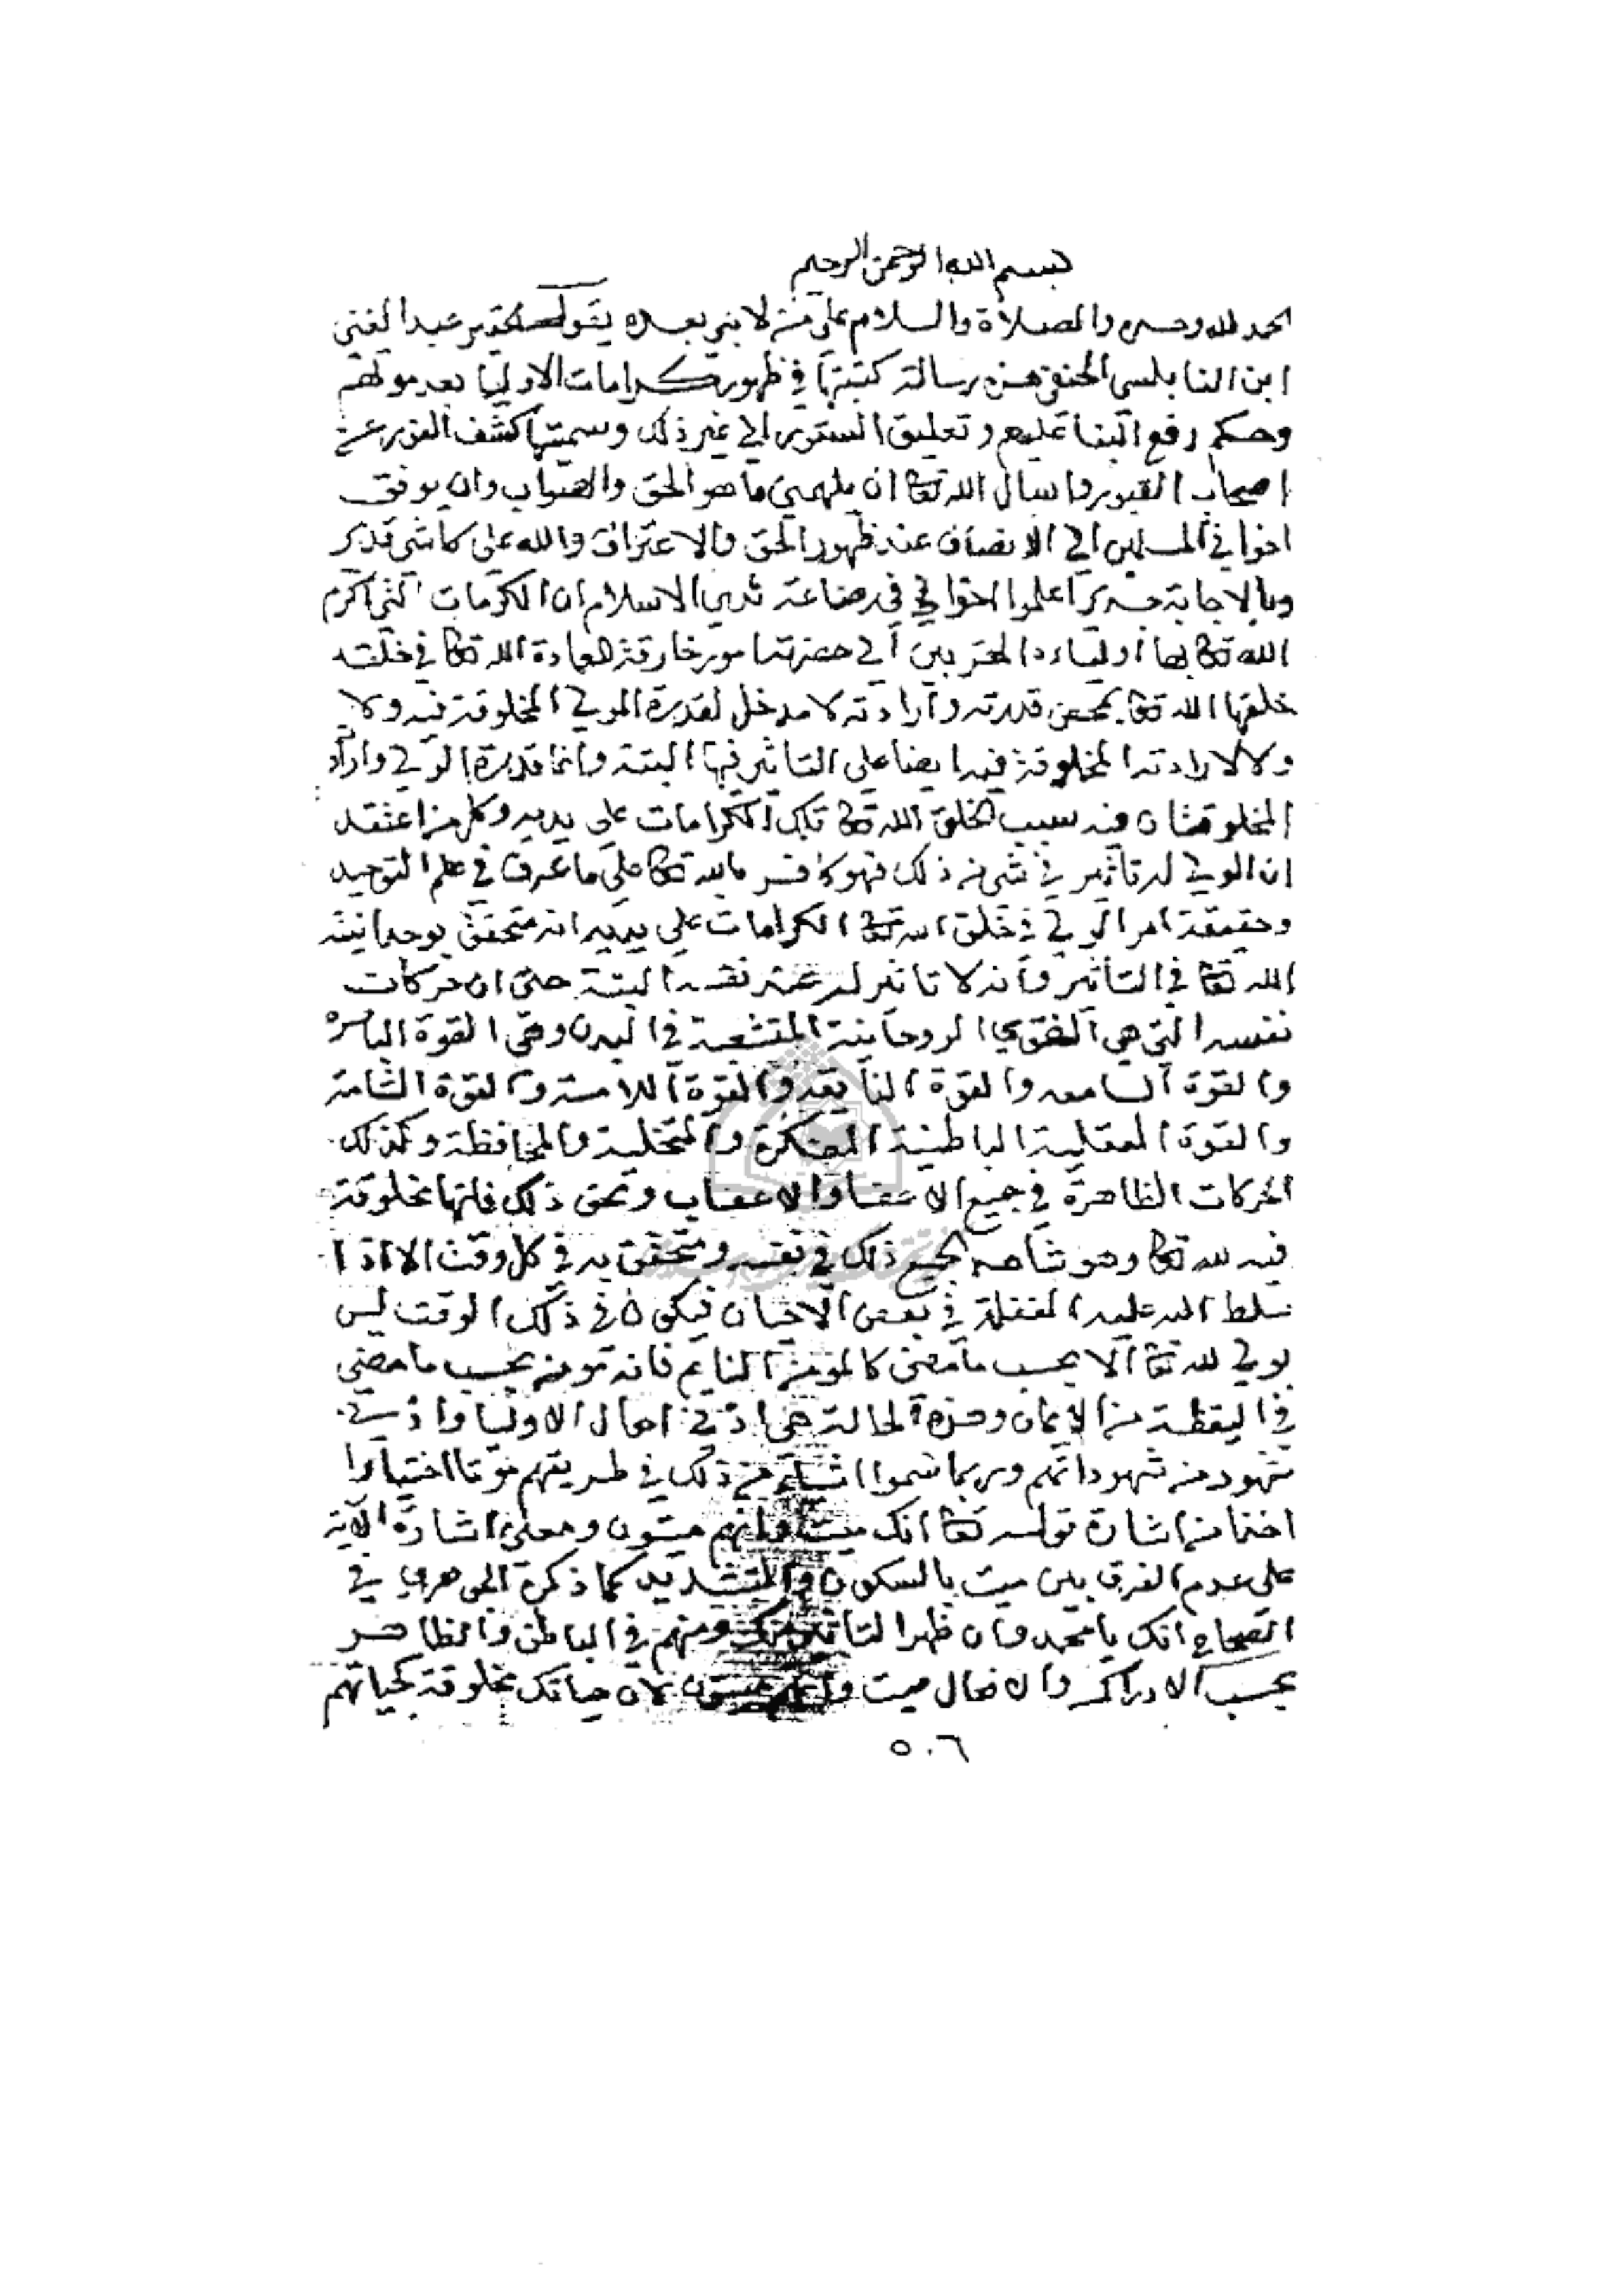 بسم الله الرحمن الرحيم
الحمد لله وحده والصلاة والسلام على من لا نبي بعده يقول الحقير عبد الغني
ابن النابلسي الحنفي هذه رسالة كتبتها في ظهور كرامات الاوليا بعد موتهم
وحكم رفع البنا عليهم وتعليق الستور الي غير ذلك وسميتها كشف النور عن
اصحاب القبور واسال الله تعالى ان يلهمني ما هو الحق والصواب وان يوفق
اخواني المسلمين الي الانصاف عند ظهور الحق والاعتراف والله على كل شي قدير
وبالاجابة جدير اعلموا اخواني في رضاعة ثدي الاسلام ان الكرمات التي اكرم
الله تعالى بها اولياءه المقربين الي حضرته امور خارقة للعادة الله تعالى في خلقه
خلقها الله تعالى بمحض قدرته وارادته لا مدخل لقدرة الولي المخلوقة فيه ولا
ولا لارادته المخلوقة فيه ايضا على التاثير فيها البتة وانما قدرة الولي واراد
المخلوقتان فيه سبب لخلق الله تعالى تلك الكرامات على يديه وكل من اعتقد
ان الولي له تاثير في شي من ذلك فهو كافر بالله تعالى على ما عرف في علم التوحيد
وحقيقة امر الولي في خلق الله تعالى الكرامات على يديه انه متحقق بوحدانية
الله تعالى في التاثير وانه لا تاثير له عند نفسه البتة حتى ان حركات
نفسه التي هي القوي الروحانية المتشعبة في البدن وهي القوة الباصرة
والقوة السامعه والقوة الذايقة والقوة اللامسة والقوة الشامة
والقوة العقلية الباطنية المفكرة والمتخيلة والمحافظة وكذلك
الحركات الظاهرة في جميع الاعضا والاعصاب ونحو ذلك فانها مخلوقة
فيه لله تعالى وهو شاهد لجميع ذلك في نفسه ومتحقق به في كل وقت الا اذا
سلط الله عليه الغفلة في بعض الاحيان فيكون في ذلك الوقت ليس
بولي لله تعالى الا بحسب ما مضى كالمومن النايم فانه مومن بحسب ما مضي
في اليقظة من الايمان وهذه الحالة هي ادني احوال الاوليا وادني
شهود من شهوداتهم وربما سموا من ذلك في طريقهم موتا اختياريا
اخذا من اشارة قوله تعالى انك ميت وانهم ميتون ومعني اشارة الاية
على عدم الفرق بين ميت بالسكون والتشديد كما ذكره الجوهري في
الصحاح انك يا محمد وان ظهر التاثير منك ومنهم في الباطن والظاهر
بحسب الادراك والافعال ميت وانهم ميتون لان حياتك مخلوقة كحياتهم
٥٠٦